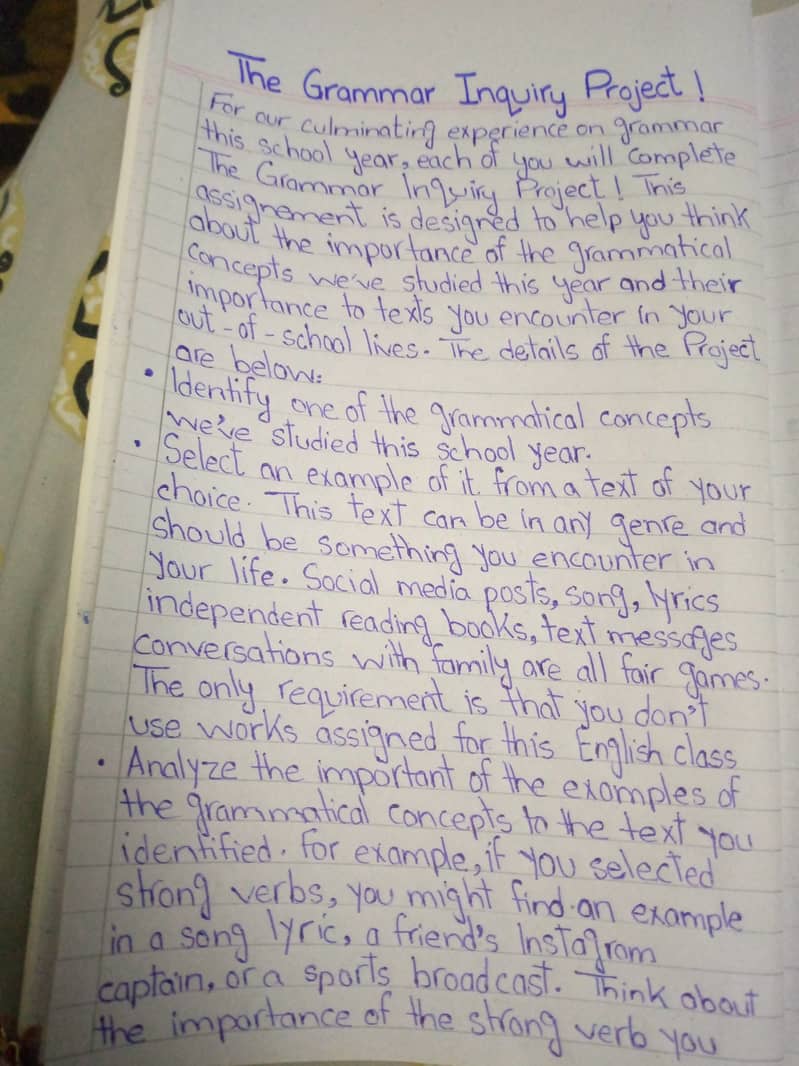 The Grammar Inquiry Project!
For our culminating experience on grammar
this school year, each of you will complete
The Grammar Inquiry Project! This
assignement is designed to help you think
about the importance of the grammatical
concepts we've studied this year and their
importance to texts you encounter in your
out-of-school lives. The details of the Project
are below:
• Identify one of the grammatical concepts
we've studied this school year.
• Select an example of it from a text of your
choice. This text can be in any genre and
should be something you encounter in
your life. Social media posts, song, lyrics
independent reading books, text messages
conversations with family are all fair games.
The only requirement is that you don't
use works assigned for this English class
• Analyze the important of the examples of
the grammatical concepts to the text you
identified. for example, if you selected
strong verbs, you might find an example
in a song lyric, a friend's Instagram
captain, or a sports broadcast. Think about
the importance of the strong verb you